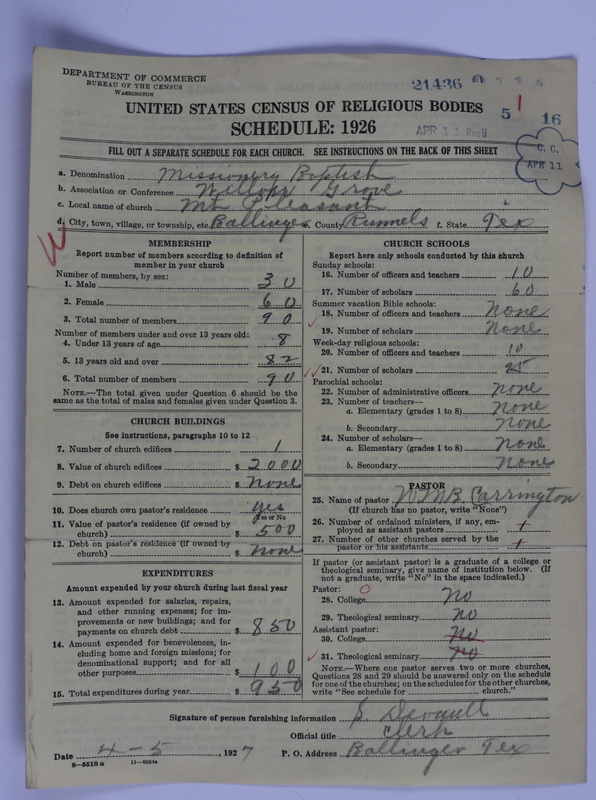 DEPARTMENT OF COMMERCE
BUREAU OF THE CENSUS
WASHINGTON
21436
UNITED STATES CENSUS OF RELIGIOUS BODIES
5 1 16
SCHEDULE: 1926
APR 11 Rec'd
C. C.
APR 11
FILL OUT A SEPARATE SCHEDULE FOR EACH CHURCH. SEE INSTRUCTIONS ON THE BACK OF THIS SHEET
a. Denomination Missionery Baptist
b. Association or Conference Willow Grove
c. Local name of church Mt Pleasant
d. City, town, village, or township, etc. Ballinger e. County Runnels f. State Tex
MEMBERSHIP
Report number of members according to definition of
member in your church
Number of members, by sex:
1. Male 30
2. Female 60
3. Total number of members 90
Number of members under and over 13 years old:
4. Under 13 years of age 8
5. 13 years old and over 82
6. Total number of members 90
NOTE.—The total given under Question 6 should be the
same as the total of males and females given under Question 3.
CHURCH BUILDINGS
See instructions, paragraphs 10 to 12
7. Number of church edifices 1
8. Value of church edifices $ 2000
9. Debt on church edifices $ None
10. Does church own pastor's residence yes
Yes or No
11. Value of pastor's residence (if owned by
church) $ 500
12. Debt on pastor's residence (if owned by
church) $ None
EXPENDITURES
Amount expended by your church during last fiscal year
13. Amount expended for salaries, repairs,
and other running expenses; for im-
provements or new buildings; and for
payments on church debt $ 850
14. Amount expended for benevolences, in-
cluding home and foreign missions; for
denominational support; and for all
other purposes $ 100
15. Total expenditures during year $ 950
CHURCH SCHOOLS
Report here only schools conducted by this church
Sunday schools:
16. Number of officers and teachers 10
17. Number of scholars 60
Summer vacation Bible schools:
18. Number of officers and teachers None
19. Number of scholars None
Week-day religious schools:
20. Number of officers and teachers 10
21. Number of scholars 25
Parochial schools:
22. Number of administrative officers none
23. Number of teachers—
a. Elementary (grades 1 to 8) None
b. Secondary None
24. Number of scholars—
a. Elementary (grades 1 to 8) None
b. Secondary None
PASTOR
25. Name of pastor W M B Carrington
(If church has no pastor, write "None")
26. Number of ordained ministers, if any, em-
ployed as assistant pastors
27. Number of other churches served by the
pastor or his assistants
If pastor (or assistant pastor) is a graduate of a college or
theological seminary, give name of institution below. (If
not a graduate, write "No" in the space indicated.)
Pastor:
28. College No
29. Theological seminary No
Assistant pastor:
30. College No
31. Theological seminary No
NOTE.—Where one pastor serves two or more churches,
Questions 28 and 29 should be answered only on the schedule
for one of the churches; on the schedules for the other churches,
write "See schedule for church."
Signature of person furnishing information S. Devault
Official title Clerk
Date 4-5, 1927 P. O. Address Ballinger Tex
8-5518a 11-9024a